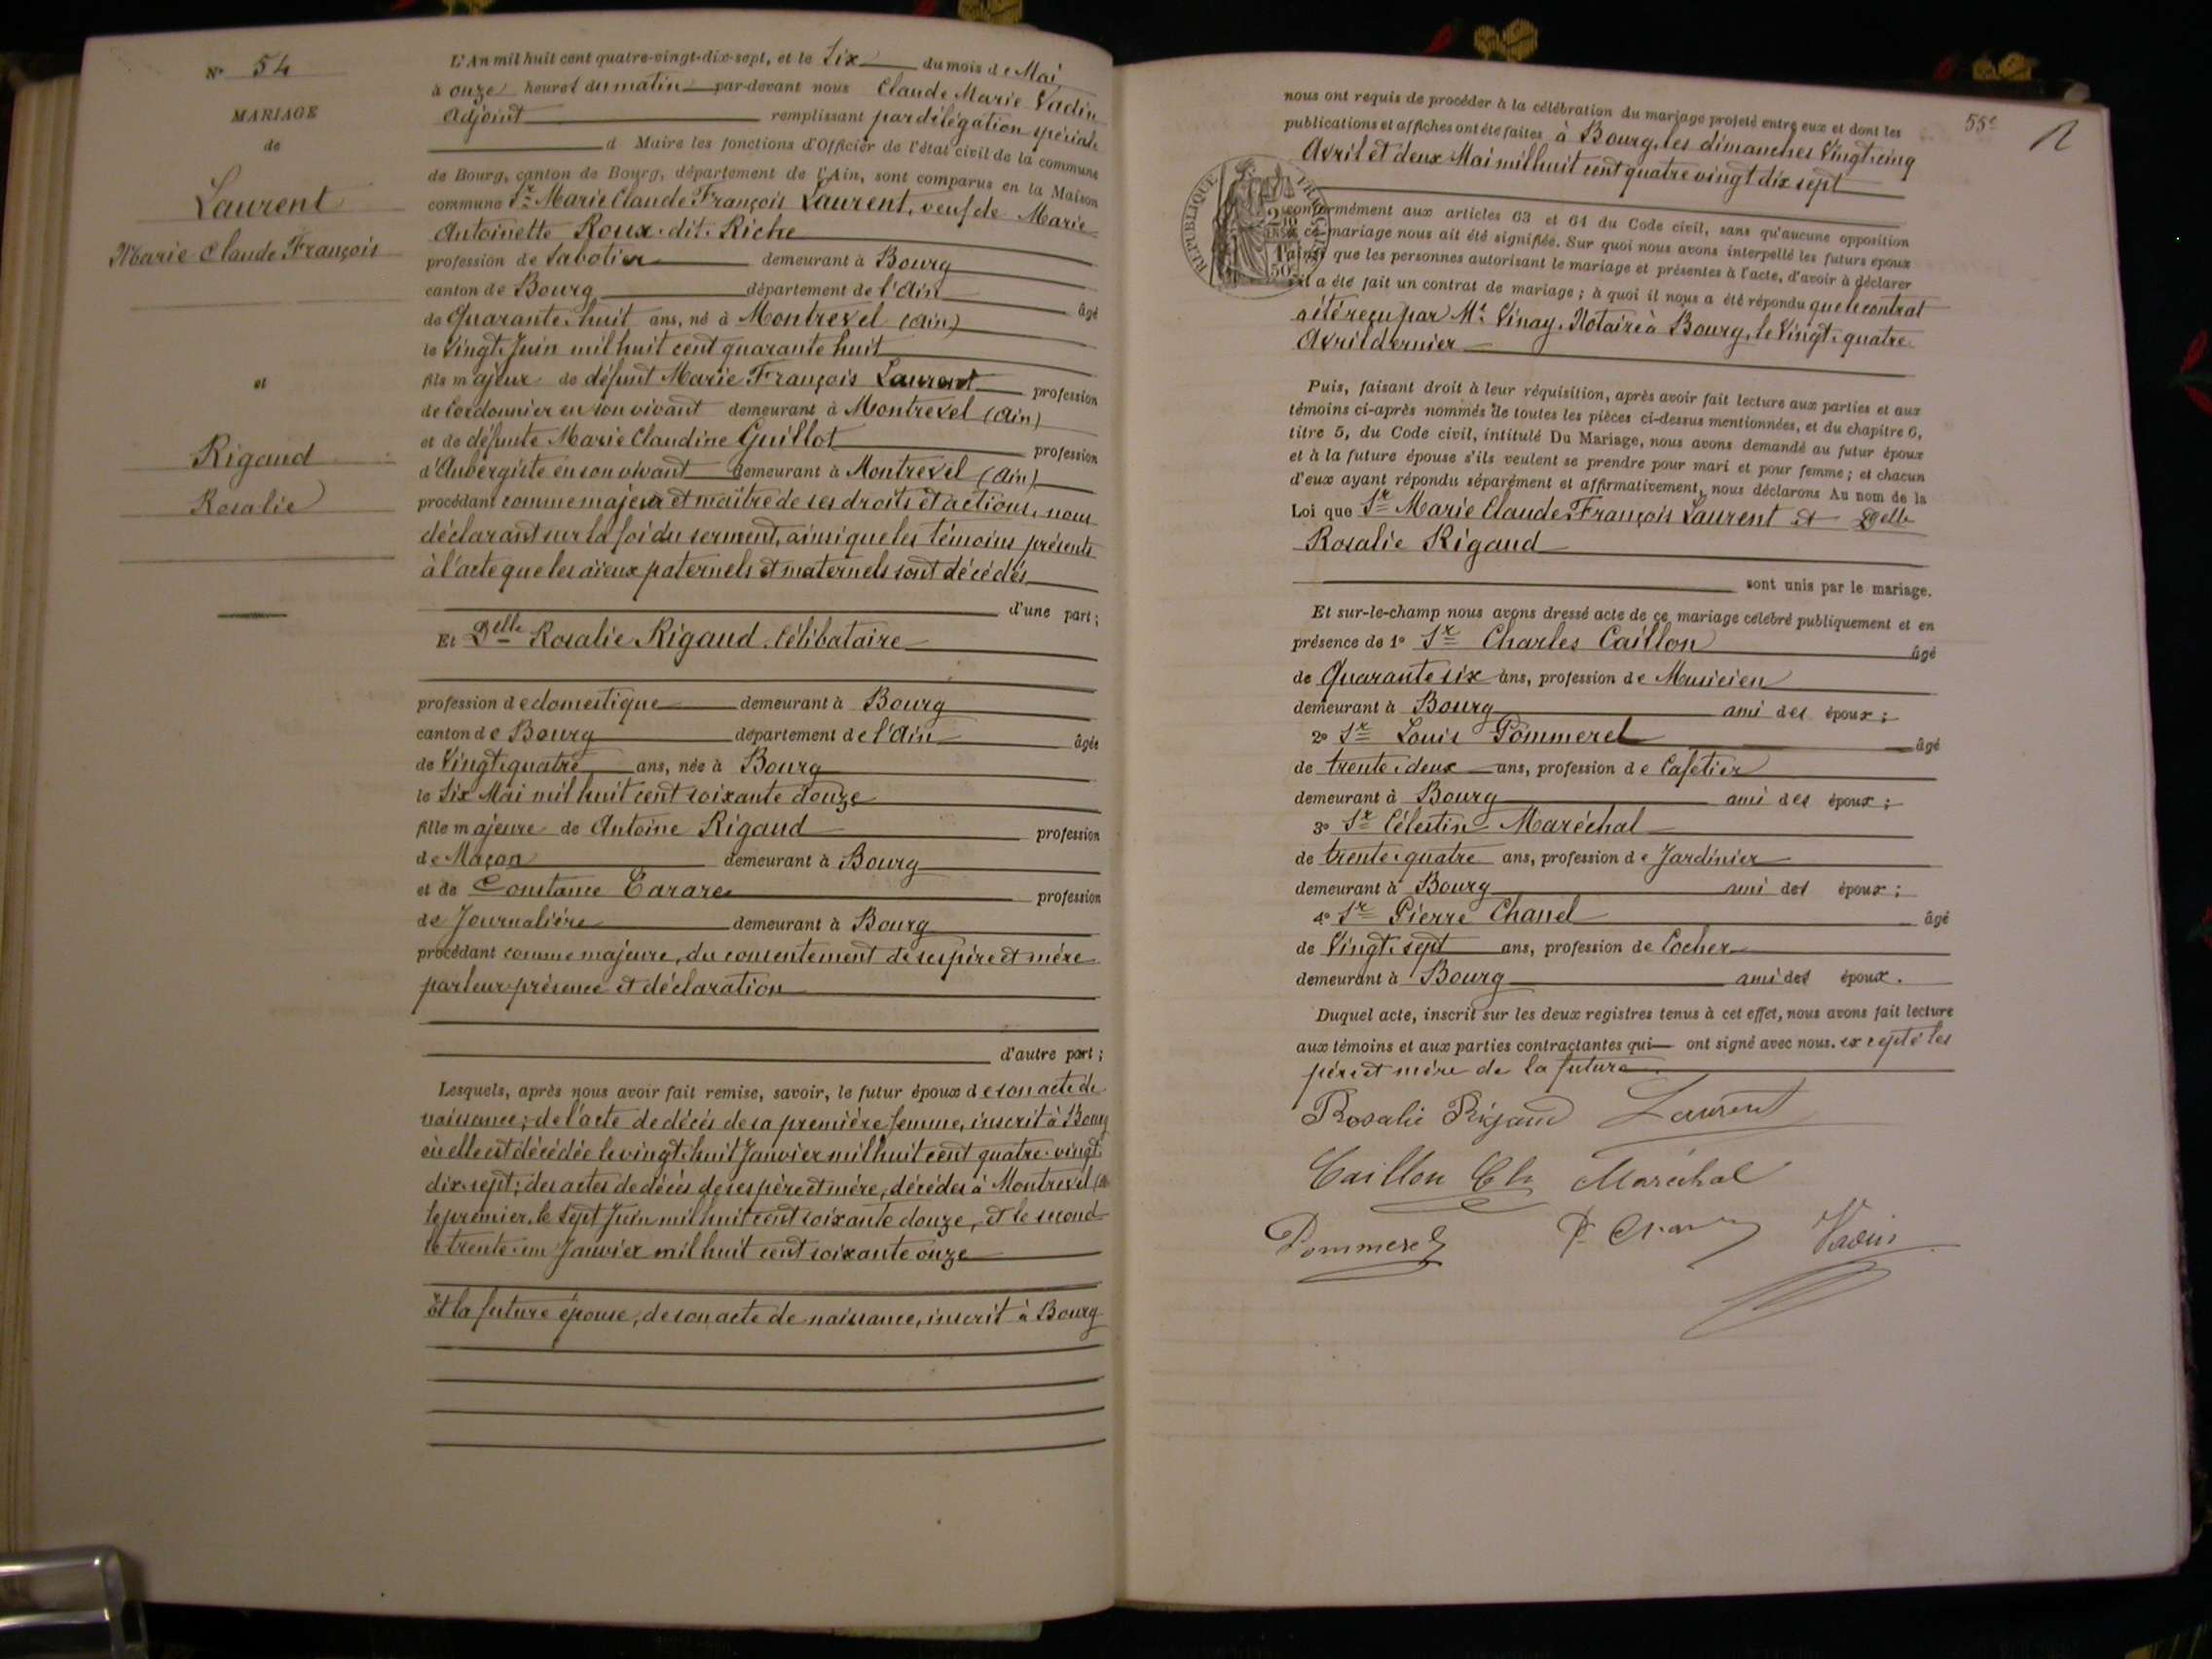 N° 54
MARIAGE
de
Laurent
Marie Claude François
et
Rigaud
Rosalie
L'An mil huit cent quatre-vingt-dix-sept, et le Six du mois de Mai
à onze heures du matin par-devant nous Claude Marie Vadin
Adjoint remplissant par délégation spéciale
d Maire les fonctions d'Officier de l'état civil de la commune
de Bourg, canton de Bourg, département de l'Ain, sont comparus en la Maison
commune Sr Marie Claude François Laurent, veuf de Marie
Antoinette Roux dit Riche
profession de Sabotier demeurant à Bourg
canton de Bourg département de l'Ain âgé
de Quarante-huit ans, né à Montrevel (Ain)
le Vingt Juin mil huit cent quarante huit
fils majeur de défunt Marie François Laurent profession
de Cordonnier en son vivant demeurant à Montrevel (Ain)
et de défunte Marie Claudine Guillot profession
d'Aubergiste en son vivant demeurant à Montrevel (Ain)
procédant comme majeur et maître de ses droits et actions, nous
déclarant sur la foi du serment, ainsi que les témoins présents
à l'acte que les aïeux paternels et maternels sont décédés
d'une part ;
Et Delle Rosalie Rigaud. Célibataire
profession de domestique demeurant à Bourg
canton de Bourg département de l'Ain âgée
de Vingt-quatre ans, née à Bourg
le Six Mai mil huit cent soixante douze
fille majeure de Antoine Rigaud profession
de Maçon demeurant à Bourg
et de Constance Tarare profession
de Journalière demeurant à Bourg
procédant comme majeure, du consentement de ses père et mère
par leur présence et déclaration
d'autre part ;
Lesquels, après nous avoir fait remise, savoir, le futur époux de son acte de
naissance ; de l'acte de décès de sa première femme, inscrit à Bourg
où elle est décédée le vingt-huit Janvier mil huit cent quatre-vingt
dix-sept ; des actes de décès de ses père et mère, décédés à Montrevel
le premier, le sept Juin mil huit cent soixante douze, et le second
le trente-un Janvier mil huit cent soixante onze
Et la future épouse, de son acte de naissance, inscrit à Bourg
55e
nous ont requis de procéder à la célébration du mariage projeté entre eux et dont les
publications et affiches ont été faites à Bourg, les dimanches Vingt-cinq
Avril et deux Mai mil huit cent quatre vingt dix sept
RÉPUBLIQUE FRANÇAISE
conformément aux articles 63 et 64 du Code civil, sans qu'aucune opposition
à ce mariage nous ait été signifiée. Sur quoi nous avons interpellé les futurs époux
ainsi que les personnes autorisant le mariage et présentes à l'acte, d'avoir à déclarer
s'il a été fait un contrat de mariage ; à quoi il nous a été répondu que le contrat
a été reçu par Me Vinay, Notaire à Bourg, le Vingt-quatre
Avril dernier
Puis, faisant droit à leur réquisition, après avoir fait lecture aux parties et aux
témoins ci-après nommés de toutes les pièces ci-dessus mentionnées, et du chapitre 6,
titre 5, du Code civil, intitulé Du Mariage, nous avons demandé au futur époux
et à la future épouse s'ils veulent se prendre pour mari et pour femme ; et chacun
d'eux ayant répondu séparément et affirmativement, nous déclarons Au nom de la
Loi que Sr Marie Claude François Laurent et Delle
Rosalie Rigaud
sont unis par le mariage.
Et sur-le-champ nous avons dressé acte de ce mariage célébré publiquement et en
présence de 1° Sr Charles Caillon âgé
de Quarante six ans, profession de Musicien
demeurant à Bourg ami des époux ;
2° Sr Louis Pommerel âgé
de trente-deux ans, profession de Cafetier
demeurant à Bourg ami des époux ;
3° Sr Célestin Maréchal
de trente-quatre ans, profession de Jardinier
demeurant à Bourg ami des époux ;
4° Sr Pierre Chanel âgé
de Vingt-sept ans, profession de Cocher
demeurant à Bourg ami des époux.
Duquel acte, inscrit sur les deux registres tenus à cet effet, nous avons fait lecture
aux témoins et aux parties contractantes qui ont signé avec nous. excepté les
père et mère de la future
Rosalie Rigaud Laurent
Caillon Ch Maréchal
Pommerel Vadin